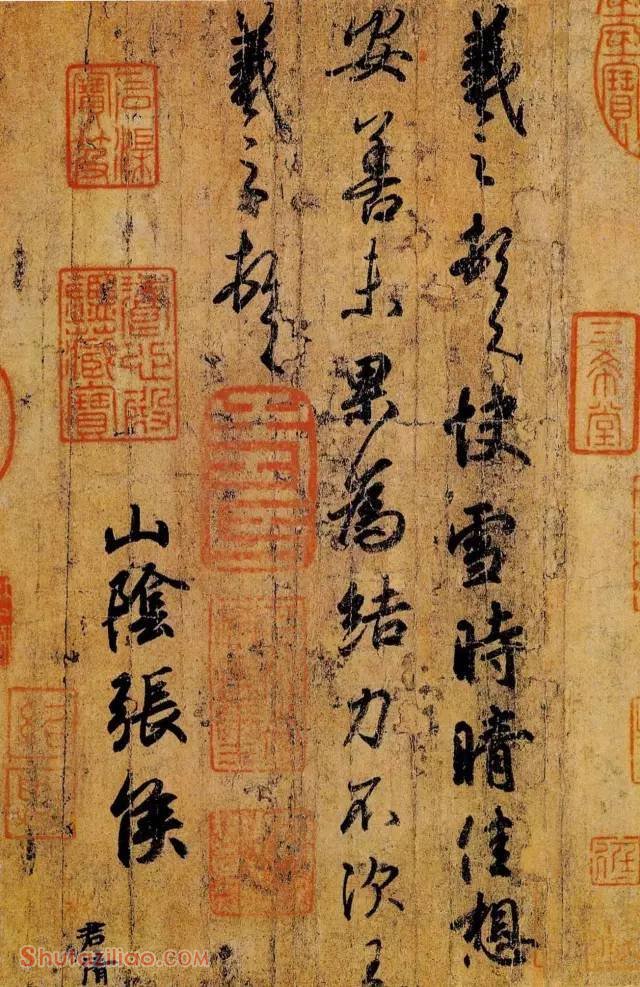 羲之頓首快雪時晴佳想
安善未果為結力不次王
羲之頓首
山陰張侯
君倩
三希堂
石渠寶笈
養心殿鑑藏寶
Shufaziliao.com